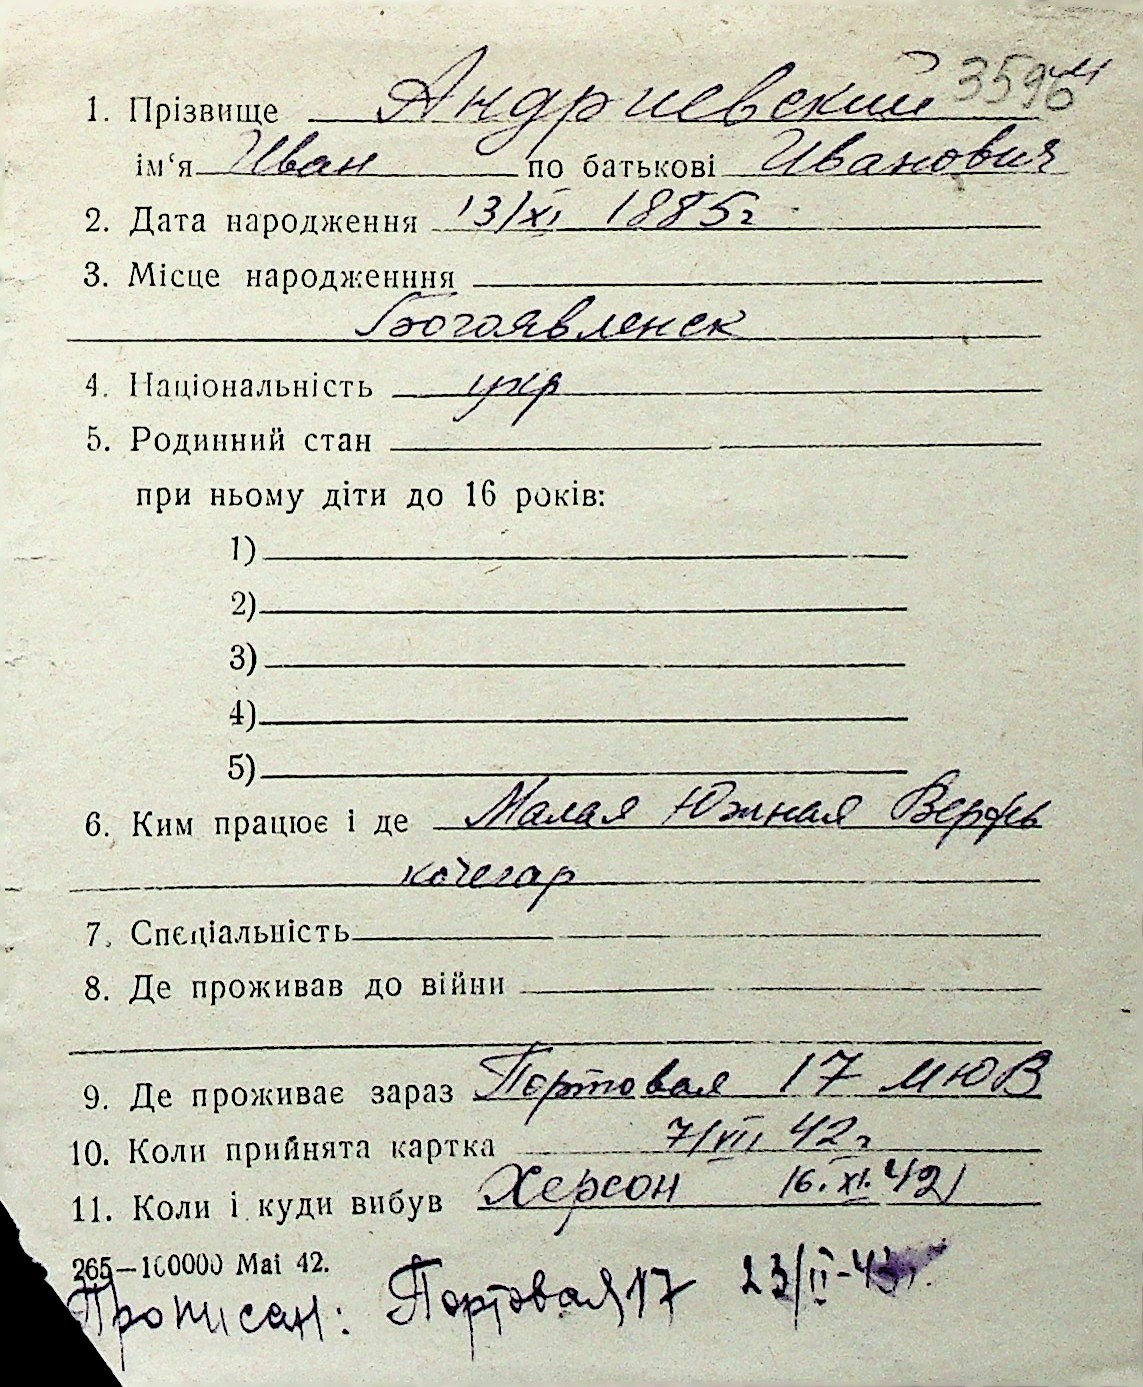 3596
1. Прізвище Андриевский
ім‘я Иван по батькові Иванович
2. Дата народження 13/XI 1885г
3. Місце народженння
Богоявленск
4. Національність укр
5. Родинний стан
при ньому діти до 16 років:
1)
2)
3)
4)
5)
6. Ким працює і де Малая Южная Верфь
кочегар
7. Спеціальність
8. Де проживав до війни
9. Де проживає зараз Портовая 17 МЮВ
10. Коли прийнята картка 7/VII 42г
11. Коли і куди вибув Херсон 16.XI.42
265—100000 Mai 42.
Прописан: Портовая 17 23/II-43г.